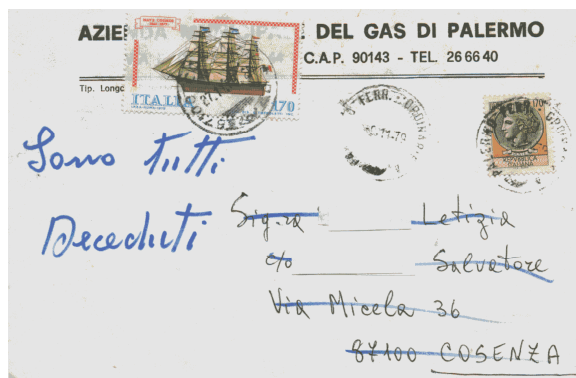 AZIE DEL GAS DI PALERMO
C.A.P. 90143 - TEL. 266640
Tip. Longo
ITALIA 170
FERR. CORDINARIE
REPVBBLICA
ITALIANA
PALERMO FERR. CORDINARIE
Sono tutti
Deceduti
Sig.ra Letizia
c/o Salvatore
Via Micela 36
87100 COSENZA